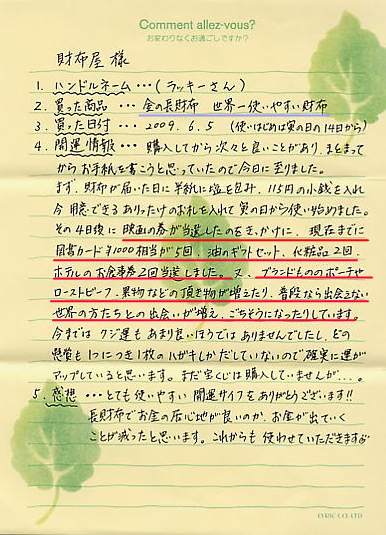 Comment allez-vous?
お変わりなくお過ごしですか？
財布屋 様
1. ハンドルネーム ･･･ (ラッキーさん)
2. 買った商品 ･･･ 金の長財布 世界一使いやすい財布
3. 買った日付 ･･･ 2009. 6. 5 (使いはじめは寅の日の14日から)
4. 開運情報 ･･･ 購入してから次々と良いことがあり、まとまって
からお手紙を書こうと思っていたので今日に至りました。
まず、財布が届いた日に半紙に塩を包み、115円の小銭を入れ
今用意できるありったけのお札を入れて寅の日から使い始めました。
その4日後に映画の券が当選したのをきっかけに、現在までに
図書カード¥1000相当が5回、油のギフトセット、化粧品2回、
ホテルのお食事券2回当選しました。又、ブランドもののポーチや
ローストビーフ、果物などの頂き物が増えたり、普段なら出会えない
世界の方たちとの出会いが増え、ごちそうになったりしています。
今まではクジ運もあまり良いほうではありませんでしたし、どの
懸賞も1つにつき1枚のハガキしかだしていないので確実に運が
アップしていると思います。まだ宝くじは購入していませんが…。
5. 感想 ･･･とても使いやすい開運サイフをありがとうございます!!
長財布でお金の居心地が良いのか、お金が出ていく
ことが減ったと思います。これからも使わせていただきます
LYRIC CO. LTD